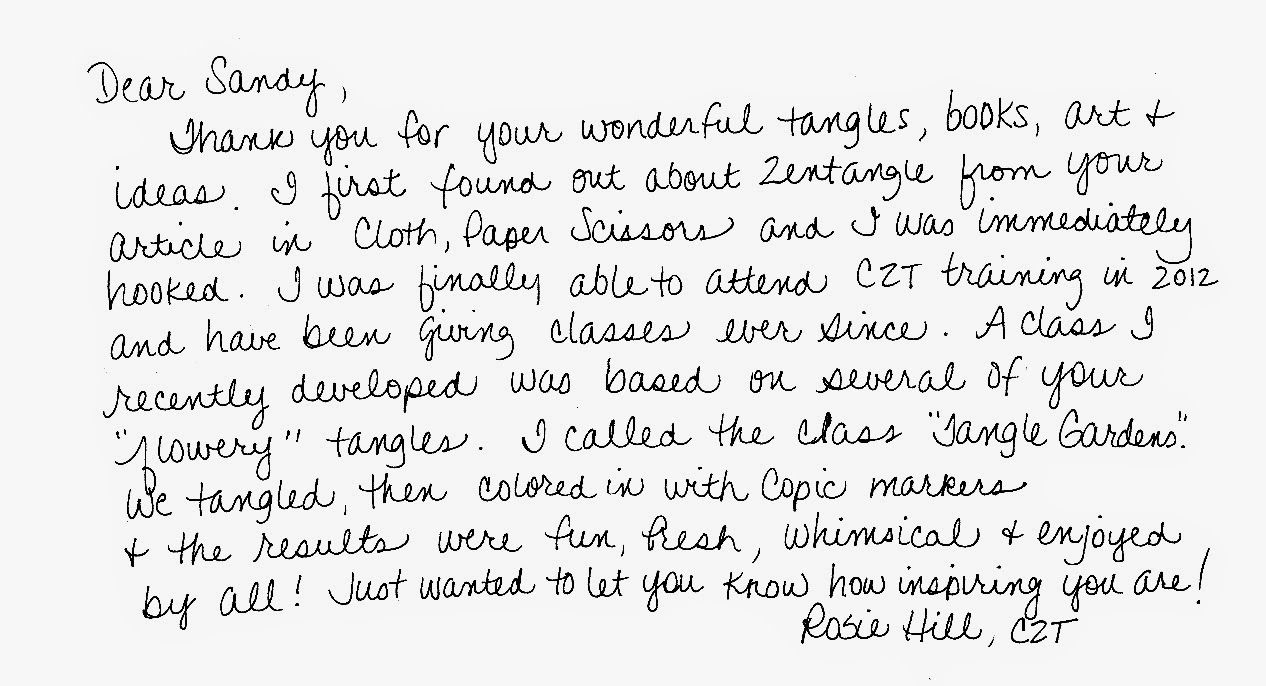 Dear Sandy,
Thank you for your wonderful tangles, books, art +
ideas. I first found out about Zentangle from your
article in Cloth, Paper Scissors and I was immediately
hooked. I was finally able to attend CZT training in 2012
and have been giving classes ever since. A class I
recently developed was based on several of your
"flowery" tangles. I called the class "Tangle Gardens".
We tangled, then colored in with Copic markers
+ the results were fun, fresh, whimsical + enjoyed
by all! Just wanted to let you know how inspiring you are!
Rosie Hill, CZT